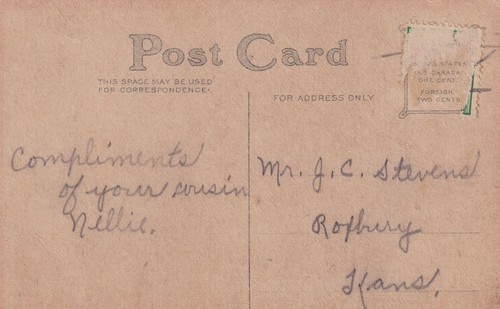 Post Card
THIS SPACE MAY BE USED
FOR CORRESPONDENCE.
FOR ADDRESS ONLY
STATES
CANADA
ONE CENT.
FOREIGN
TWO CENTS.
Compliments
of your cousin
Nellie.
Mr. J. C. Stevens
Roxbury
Kans.